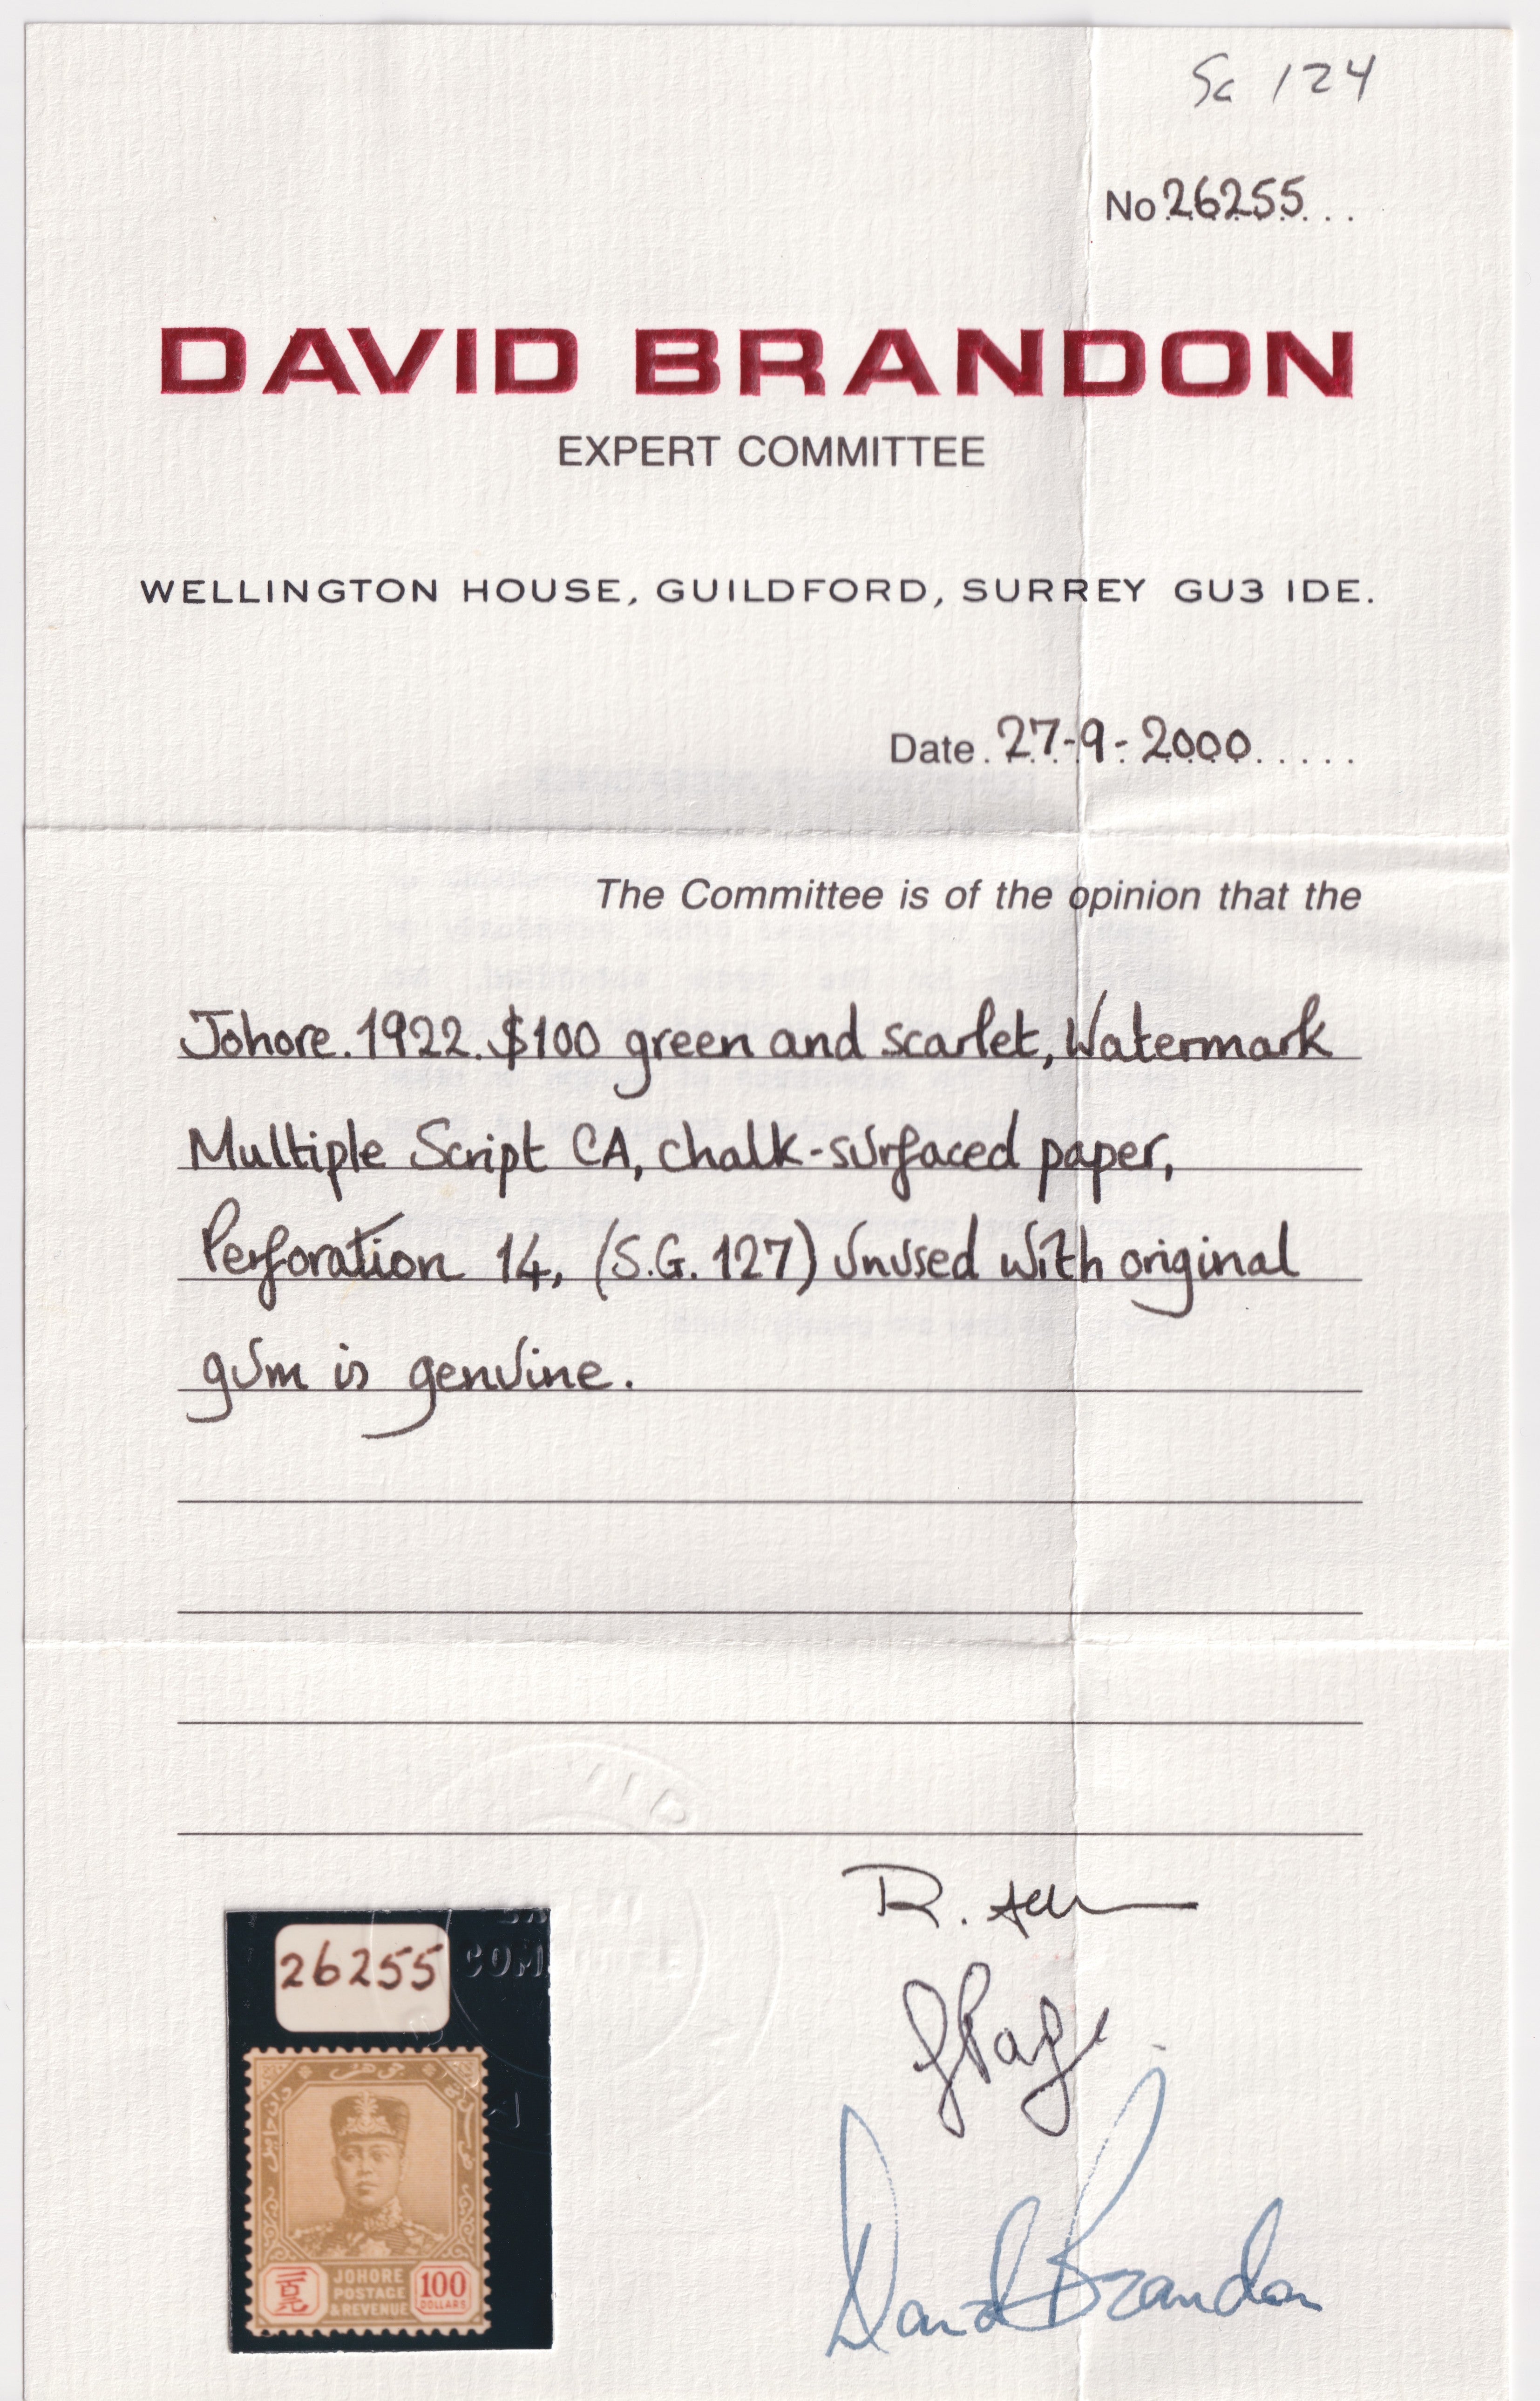 Sc 124
No 26255
DAVID BRANDON
EXPERT COMMITTEE
WELLINGTON HOUSE, GUILDFORD, SURREY GU3 1DE.
Date 27-9-2000
The Committee is of the opinion that the
Johore. 1922. $100 green and scarlet, Watermark
Multiple Script CA, chalk-surfaced paper,
Perforation 14, (S.G. 127) unused with original
gum is genuine.
R.
David Brandon
26255
JOHORE
POSTAGE
& REVENUE
100
DOLLARS